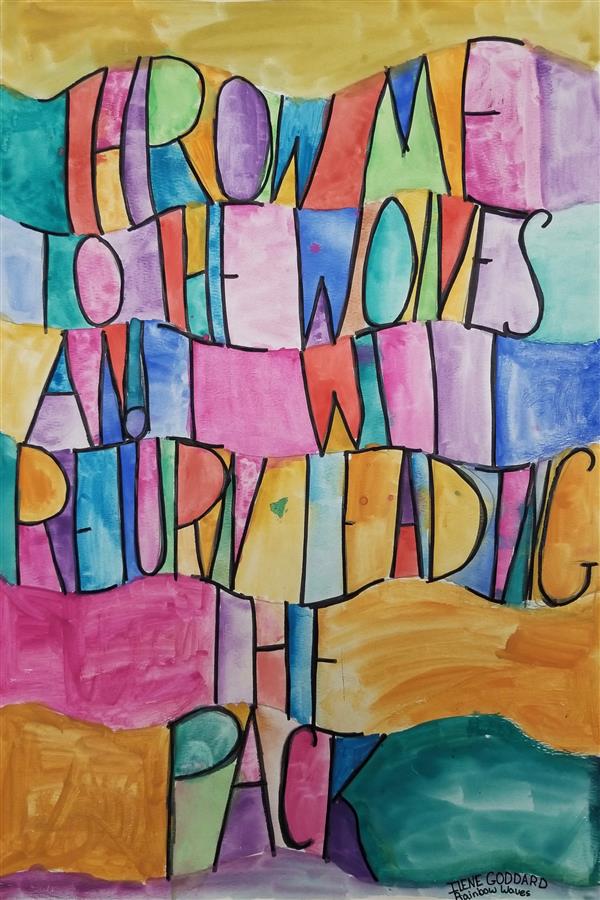 THROW ME
TO THE WOLVES
AND I WILL
RETURN LEADING
THE
PACK
ILENE GODDARD
Rainbow Waves